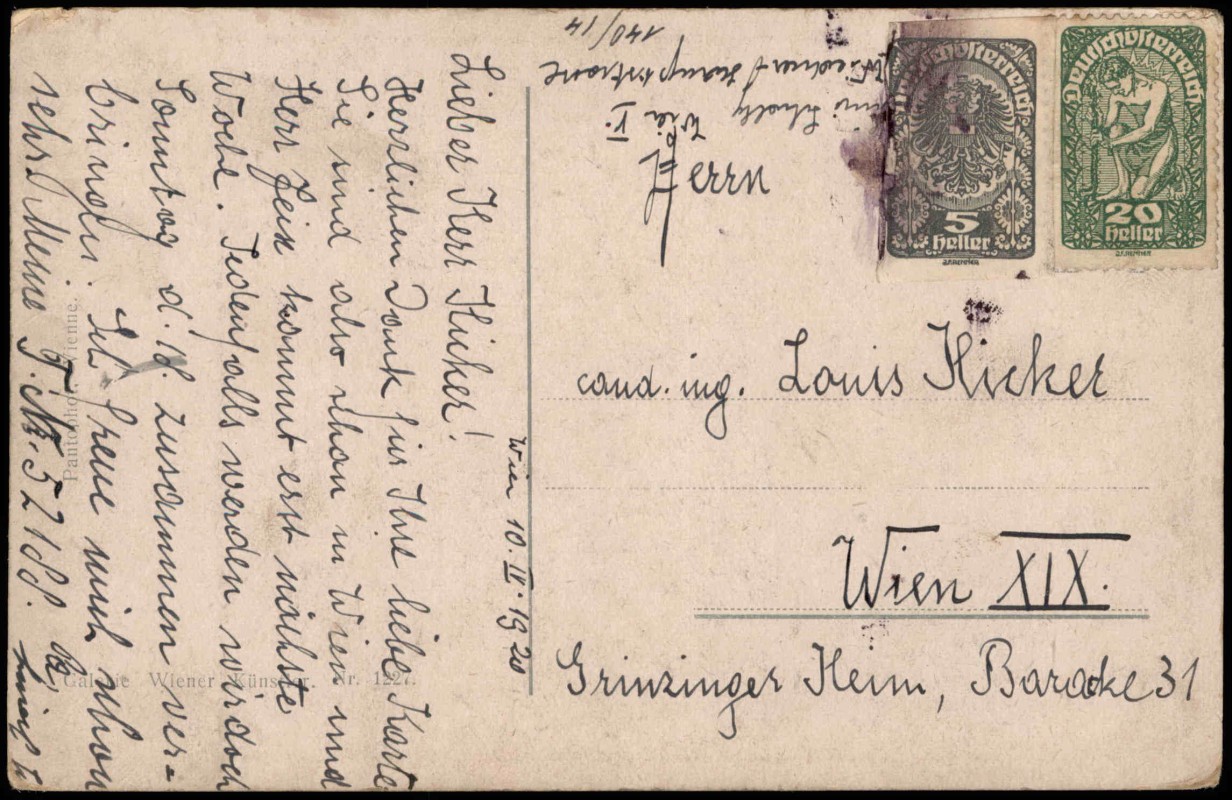 Wien 10. II. 1920
Lieber Herr Kicker!
Herzlichen Dank für Ihre liebe Karte
Sie sind also schon in Wien und
Herr Zeis kommt erst nächste
Woche. Jedenfalls werden wir doch
Sonntag d. 18. zusammen ver=
bringen. Ich freue mich schon
sehr. Meine T. Nr. 52188.
Wien V.
Wiedner Hauptstrasse
140/14
Deutschösterreich
5
Heller
Deutschösterreich
20
Heller
Herrn
cand. ing. Louis Kicker
Wien XIX.
Grinzinger Heim, Baracke 31
Galerie Wiener Künstler. Nr. 1227.
Vienne.